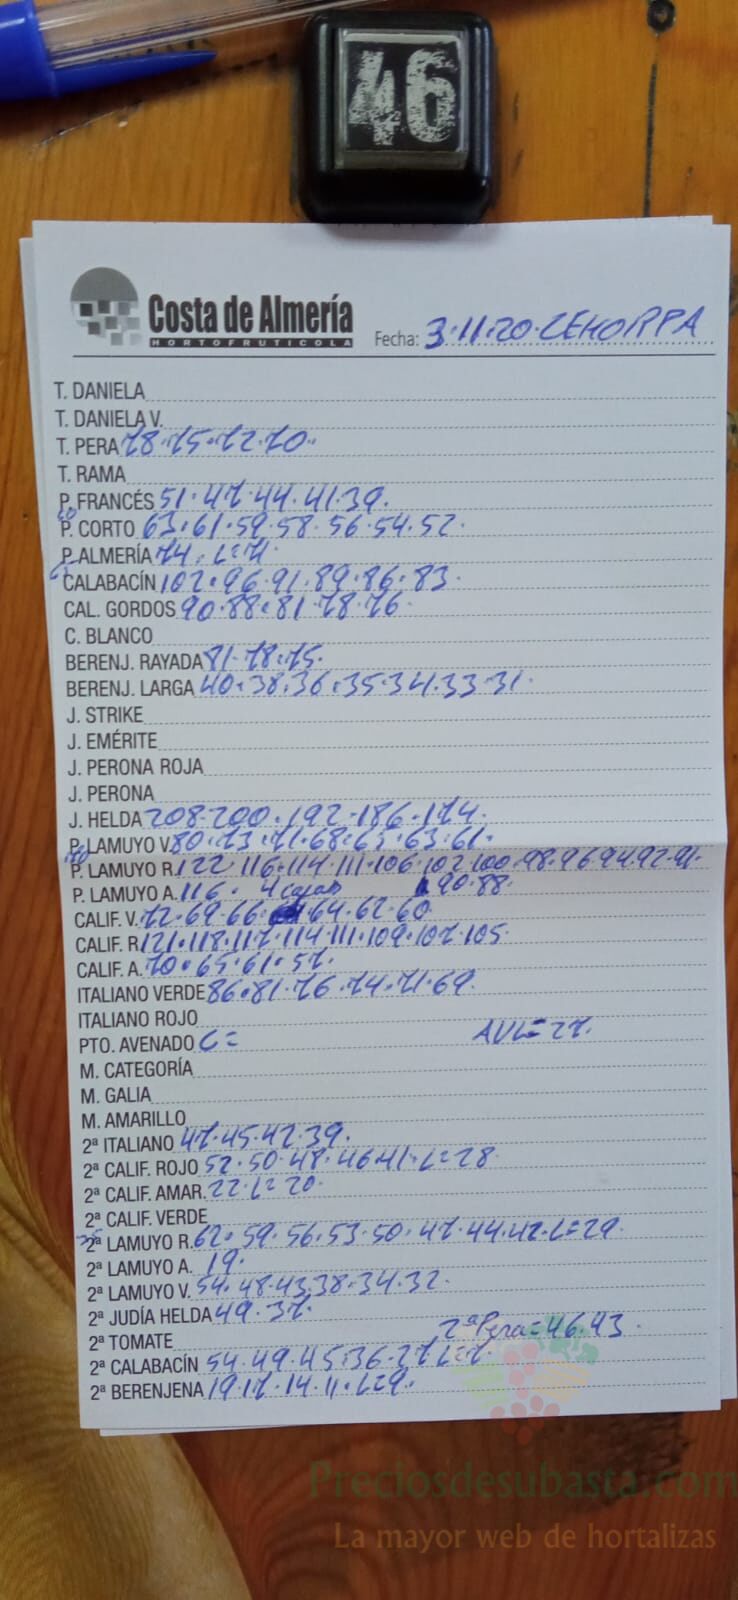 46
Costa de Almería
HORTOFRUTICOLA
Fecha: 3.11.20. CEHORPA
T. DANIELA
T. DANIELA V.
T. PERA 78.75.72.70.
T. RAMA
P. FRANCÉS 51.47.44.41.39.
P. CORTO 63.61.59.58.56.54.52.
P. ALMERÍA 74. L=71
CALABACÍN 102.96.91.89.86.83.
CAL. GORDOS 90.88.81.78.76.
C. BLANCO
BERENJ. RAYADA 81.78.75.
BERENJ. LARGA 40.38.36.35.34.33.31.
J. STRIKE
J. EMÉRITE
J. PERONA ROJA
J. PERONA
J. HELDA 208.200.192.186.174.
P. LAMUYO V. 80.73.71.68.65.63.61.
P. LAMUYO R. 122.116.114.111.106.102.100.98.96.94.92.91.
P. LAMUYO A. 116. 4 cajas 90.88.
CALIF. V. 72.69.66. 64.62.60
CALIF. R 121.118.117.114.111.109.107.105.
CALIF. A. 70.65.61.57.
ITALIANO VERDE 86.81.76.74.71.69.
ITALIANO ROJO
PTO. AVENADO C= AVL=27.
M. CATEGORÍA
M. GALIA
M. AMARILLO
2ª ITALIANO 47.45.42.39.
2ª CALIF. ROJO 52.50.48.46.41.L=28
2ª CALIF. AMAR. 22.L=20.
2ª CALIF. VERDE
2ª LAMUYO R. 62.59.56.53.50.47.44.42.L=29.
2ª LAMUYO A. 19.
2ª LAMUYO V. 54.48.43.38.34.32.
2ª JUDÍA HELDA 49.37.
2ª TOMATE 2ª Pera=46.43.
2ª CALABACÍN 54.49.45.36.27.L=7.
2ª BERENJENA 19.17.14.11.L=9.
Preciosdesubasta.com
La mayor web de hortalizas